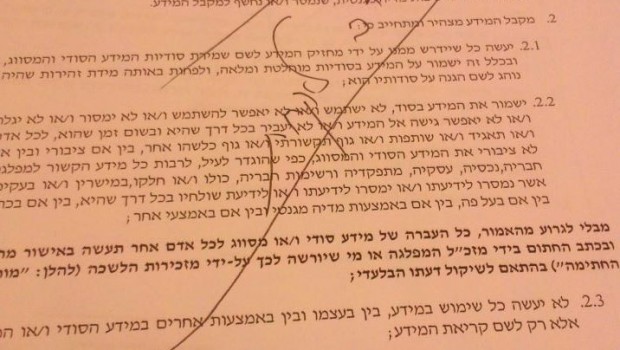 שנמסר ו/או נחשף למקבל המידע.
2. מקבל המידע מצהיר ומתחייב כי:
2.1 יעשה כל שיידרש ממנו על ידי מחזיק המידע לשם שמירת סודיות המידע הסודי והמסווג,
ובכלל זה ישמור על המידע בסודיות מוחלטת ומלאה, ולפחות באותה מידת זהירות שהיה
נוהג לשם הגנה על סודותיו הוא;
2.2 ישמור את המידע בסוד, לא ישתמש ו/או לא יאפשר להשתמש ו/או לא ימסור ו/או לא יגלה
ו/או לא יאפשר גישה אל המידע ו/או לא יעביר בכל דרך שהיא ובשום זמן שהוא, לכל אדם
ו/או תאגיד ו/או שותפות ו/או גוף תקשורתי ו/או גוף כלשהו אחר, בין אם ציבורי ובין אם
לא ציבורי את המידע הסודי והמסווג, כפי שהוגדר לעיל, לרבות כל מידע הקשור למפלגה
חבריה, נכסיה, עסקיה, מתפקדיה ורשימות חבריה, כולו ו/או חלקו, במישרין ו/או בעקיפין
אשר נמסרו לידיעתו ו/או ימסרו לידיעתו ו/או לידיעת שולחיו בכל דרך שהיא, בין אם בכתב
בין אם בעל פה, בין אם באמצעות מדיה מגנטית ובין אם באמצעי אחר;
מבלי לגרוע מהאמור, כל העברה של מידע סודי ו/או מסווג לכל אדם אחר תעשה באישור
ובכתב החתום בידי מזכ"ל המפלגה או מי שיורשה לכך על-ידי מזכירות הלשכה (להלן:
החתימה") בהתאם לשיקול דעתו הבלעדי;
2.3 לא יעשה כל שימוש במידע, בין בעצמו ובין באמצעות אחרים במידע הסודי ו/או
אלא רק לשם קריאת המידע;